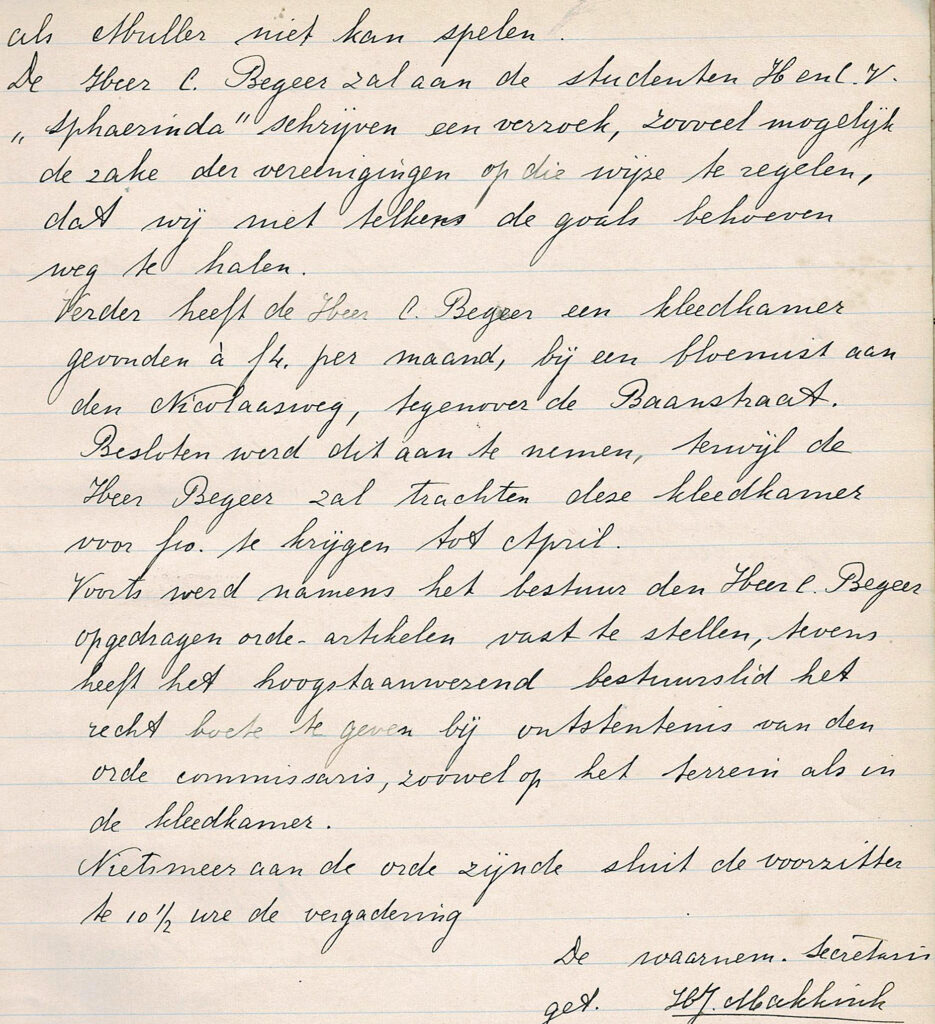 als Muller niet kan spelen.
De Heer C. Begeer zal aan de studenten H en C. V.
„Sphaerinda" schrijven een verzoek, zooveel mogelijk
de zake der vereenigingen op die wijze te regelen,
dat wij niet telkens de goals behoeven
weg te halen.
Verder heeft de Heer C. Begeer een kleedkamer
gevonden à f4. per maand, bij een bloemist aan
den Nicolaasweg, tegenover de Baanstraat.
Besloten werd dit aan te nemen, terwijl de
Heer Begeer zal trachten deze kleedkamer
voor f10. te krijgen tot April.
Voorts werd namens het bestuur den Heer C. Begeer
opgedragen orde-artikelen vast te stellen, tevens
heeft het hoogstaanwezend bestuurslid het
recht boete te geven bij ontstentenis van den
orde commissaris, zoowel op het terrein als in
de kleedkamer.
Niets meer aan de orde zijnde sluit de voorzitter
te 10 1/2 ure de vergadering
De waarnem. Secretaris
get. HJ. Makkink